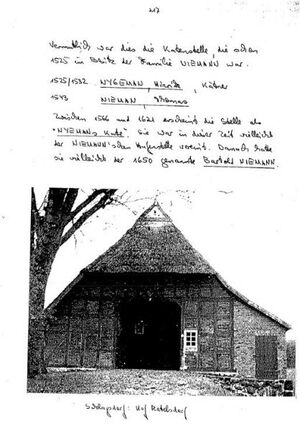 217
Vermutlich war dies die Katenstelle, die schon
1525 im Besitz der Familie NIEMANN war.
1525/1532 NYGEMAN, Hinrik, Kätner
1543 NIEMAN, Thomas
Zwischen 1566 und 1621 erscheint die Stelle als
"NYEMANs Kate". Sie war in dieser Zeit vielleicht
der NIEMANN'schen Hufenstelle vereint. Danach hatte
sie vielleicht der 1650 genannte Bartold NIEMANN.
Hof